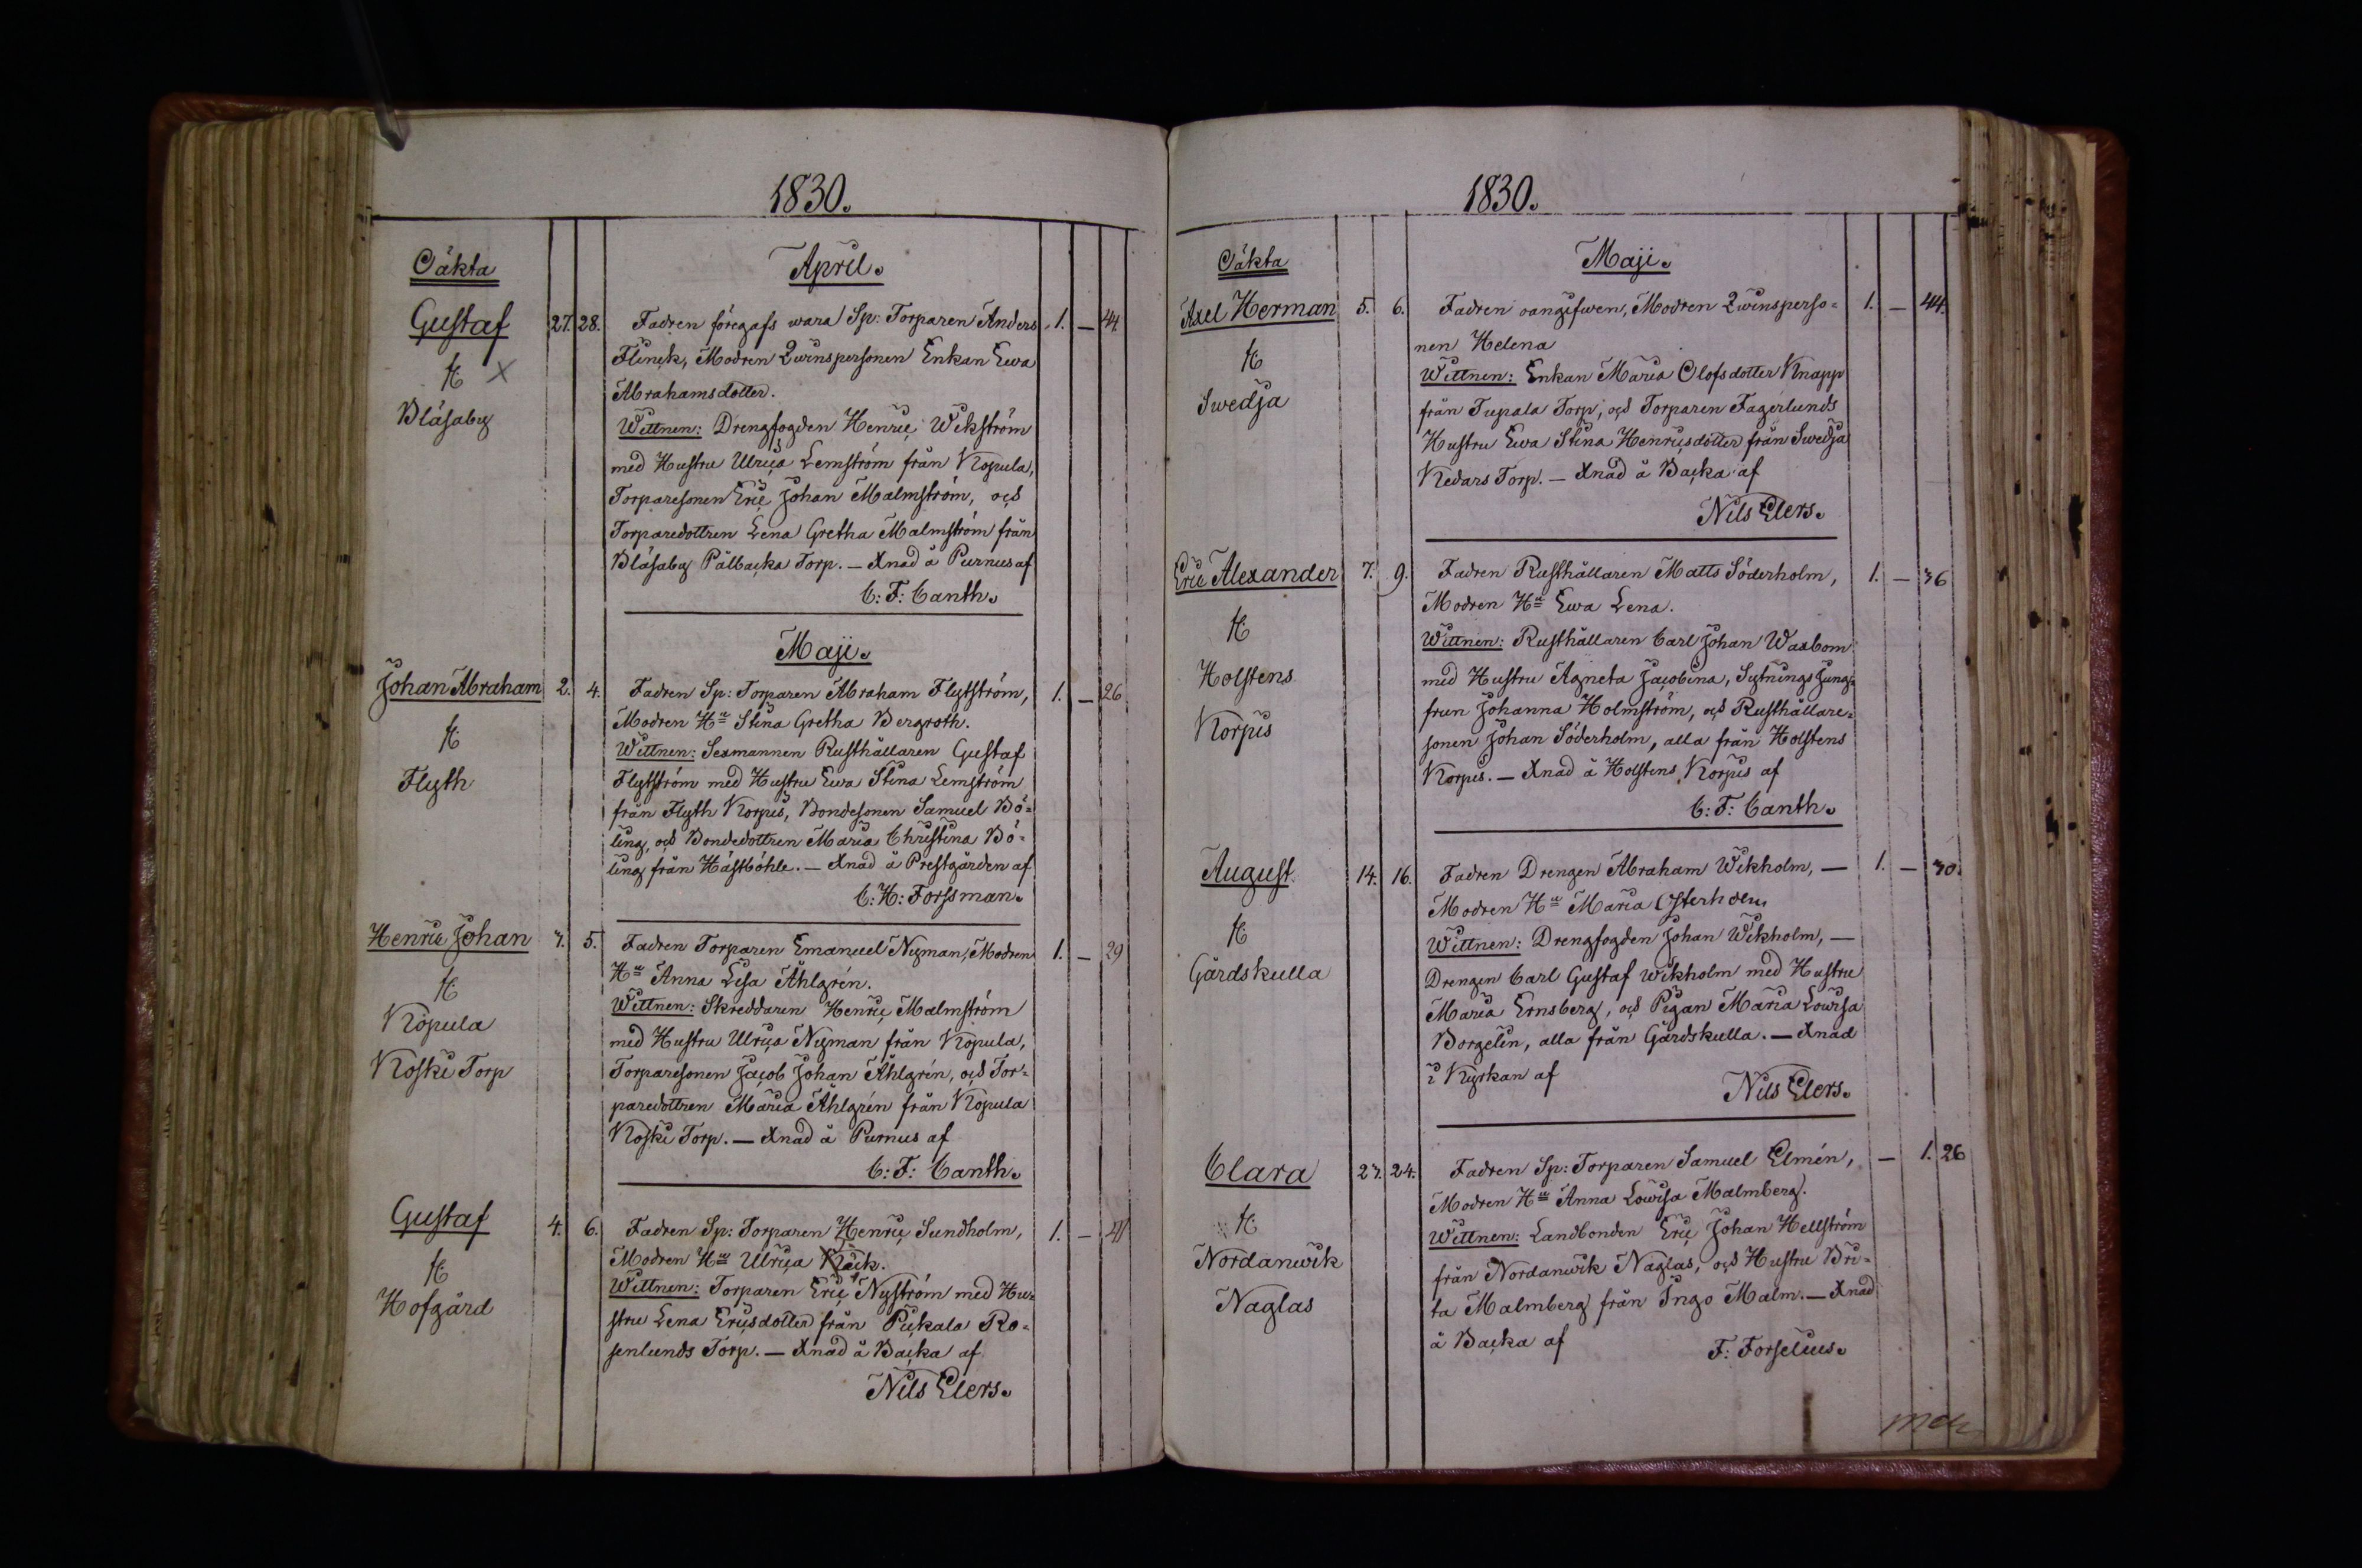 1830.
Oäkta
April.
Gustaf 27. 28. Fadren föregafs wara Sp: Torparen Anders 1. — 44
Flinck, Modren Qwinspersonen Enkan Ewa
Abrahamsdotter.
Blåsaby
Wittnen: Drengfogden Henric Wikström
med Hustru Ulrica Lemström från Kopula,
Torparesonen Eric Johan Malmström, och
Torparedottren Lena Gretha Malmström från
Blåsaby Pålbacka Torp. — Xnad å Purnus af
C: F: Canth.
Maji.
Johan Abraham 2. 4. Fadren Sp: Torparen Abraham Flytström, 1. — 26
Modren Hu Stina Gretha Bergroth.
Flyth
Wittnen: Sexmannen Rusthållaren Gustaf
Flytström med Hustru Ewa Stina Lemström
från Flyth Korpis, Bondesonen Samuel Bö=
ling, och Bondedottren Maria Christina Bö=
ling från Hästböhle. — Xnad å Prestgården af
C: H: Forssman.
Henric Johan 3. 5. Fadren Torparen Emanuel Nyman, Modren 1. — 29
Hu Anna Lisa Åhlgrén.
Kopula
Koski Torp
Wittnen: Skreddaren Henric Malmström
med Hustru Ulrica Nyman från Kopula,
Torparesonen Jacob Johan Åhlgrén, och Tor=
paredottren Maria Åhlgrén från Kopula
Koski Torp. — Xnad å Purnus af
C: F: Canth.
Gustaf 4. 6. Fadren Sp: Torparen Henric Sundholm, 1. —
Modren Hu Ulrica
Hofgård
Wittnen: Torparen Eric Nyström med Hu=
stru Lena Ericsdotter från Pickala Ro=
senlunds Torp. — Xnad å Backa af
Nils Elers.
1830.
Oäkta
Maji.
Axel Herman 5. 6. Fadren oangifwen, Modren Qwinsperso= 1. — 44.
nen Helena
Swedja
Wittnen: Enkan Maria Olofsdotter Knapp
från Tupala Torp, och Torparen Fagerlunds
Hustru Ewa Stina Henricsdotter från Swedja
Kedars Torp. — Xnad å Backa af
Nils Elers.
Eric Alexander 7. 9. Fadren Rusthållaren Matts Söderholm, 1. — 36
Modren Hu Ewa Lena.
Holstens
Korpis
Wittnen: Rusthållaren Carl Johan Waxbom
med Hustru Agneta Jacobina, Sytnings Jung=
frun Johanna Holmström, och Rusthållare=
sonen Johan Söderholm, alla från Holstens
Korpis. — Xnad å Holstens Korpis af
C: F: Canth.
August 14. 16. Fadren Drengen Abraham Wikholm, — 1. — 30.
Modren Hu Maria Österholm
Gårdskulla
Wittnen: Drengfogden Johan Wikholm, —
Drengen Carl Gustaf Wikholm med Hustru
Maria Ernsberg, och Pigan Maria Lowisa
Borgelin, alla från Gårdskulla. — Xnad
i Kyrkan af
Nils Elers.
Clara 23. 24. Fadren Sp: Torparen Samuel Elmén, — 1. 26
Modren Hu Anna Lowisa Malmberg.
Nordanwik
Naglas
Wittnen: Landbonden Eric Johan Hellström
från Nordanwik Naglas, och Hustru Bri=
ta Malmberg från Ingo Malm. — Xnad
å Backa af
F: Forselius.